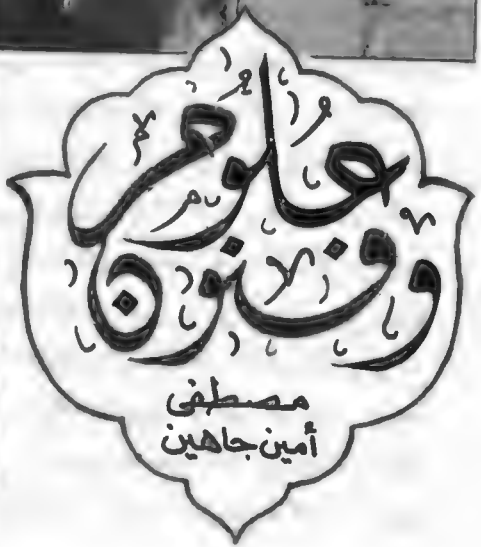 علوم
وفنون
مصطفى
أمين جاهين